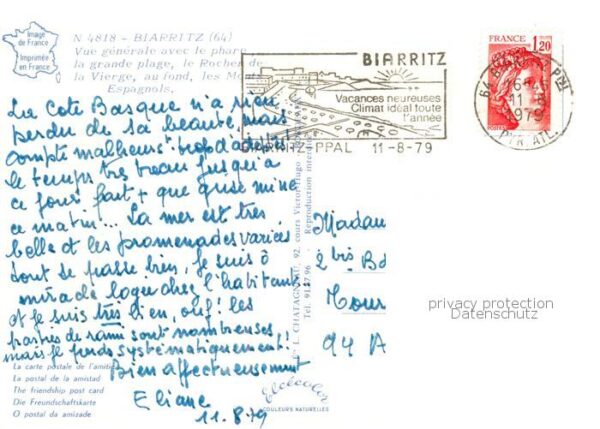 Image
de France
Imprimée
en France
N 4818 - BIARRITZ (64)
Vue générale avec le phare
la grande plage, le Rocher de
la Vierge, au fond, les Monts
Espagnols.
BIARRITZ
Vacances heureuses
Climat idéal toute
l'année
BIARRITZ PPAL 11-8-79
FRANCE
1,20
POSTES
64 BIARRITZ PPAL
16H
11-8
1979
PYR ATL.
La Cote Basque n'a rien
perdu de sa beauté mais
compte malheurs trop d'adeptes!
le temps très beau jusqu'à
ce jour fait + que grise mine
ce matin... La mer est très
belle et les promenades variées
tout se passe bien, je suis à
loger chez l'habitante
et je suis très bien, ouf! les
parties de rami sont nombreuses,
mais je perds systématiquement!
Bien affectueusement
Eliane
11.8.79
Madam
2 bis Bd
94 A
L. CHATAGNEAU, 92, cours Victor-Hugo
Tel. 91.27.96 - Reproduction interdite
La carte postale de l'amitié
La postal de la amistad
The friendship post card
Die Freundschaftskarte
O postal da amizade
Elcécolor
COULEURS NATURELLES
privacy protection
Datenschutz